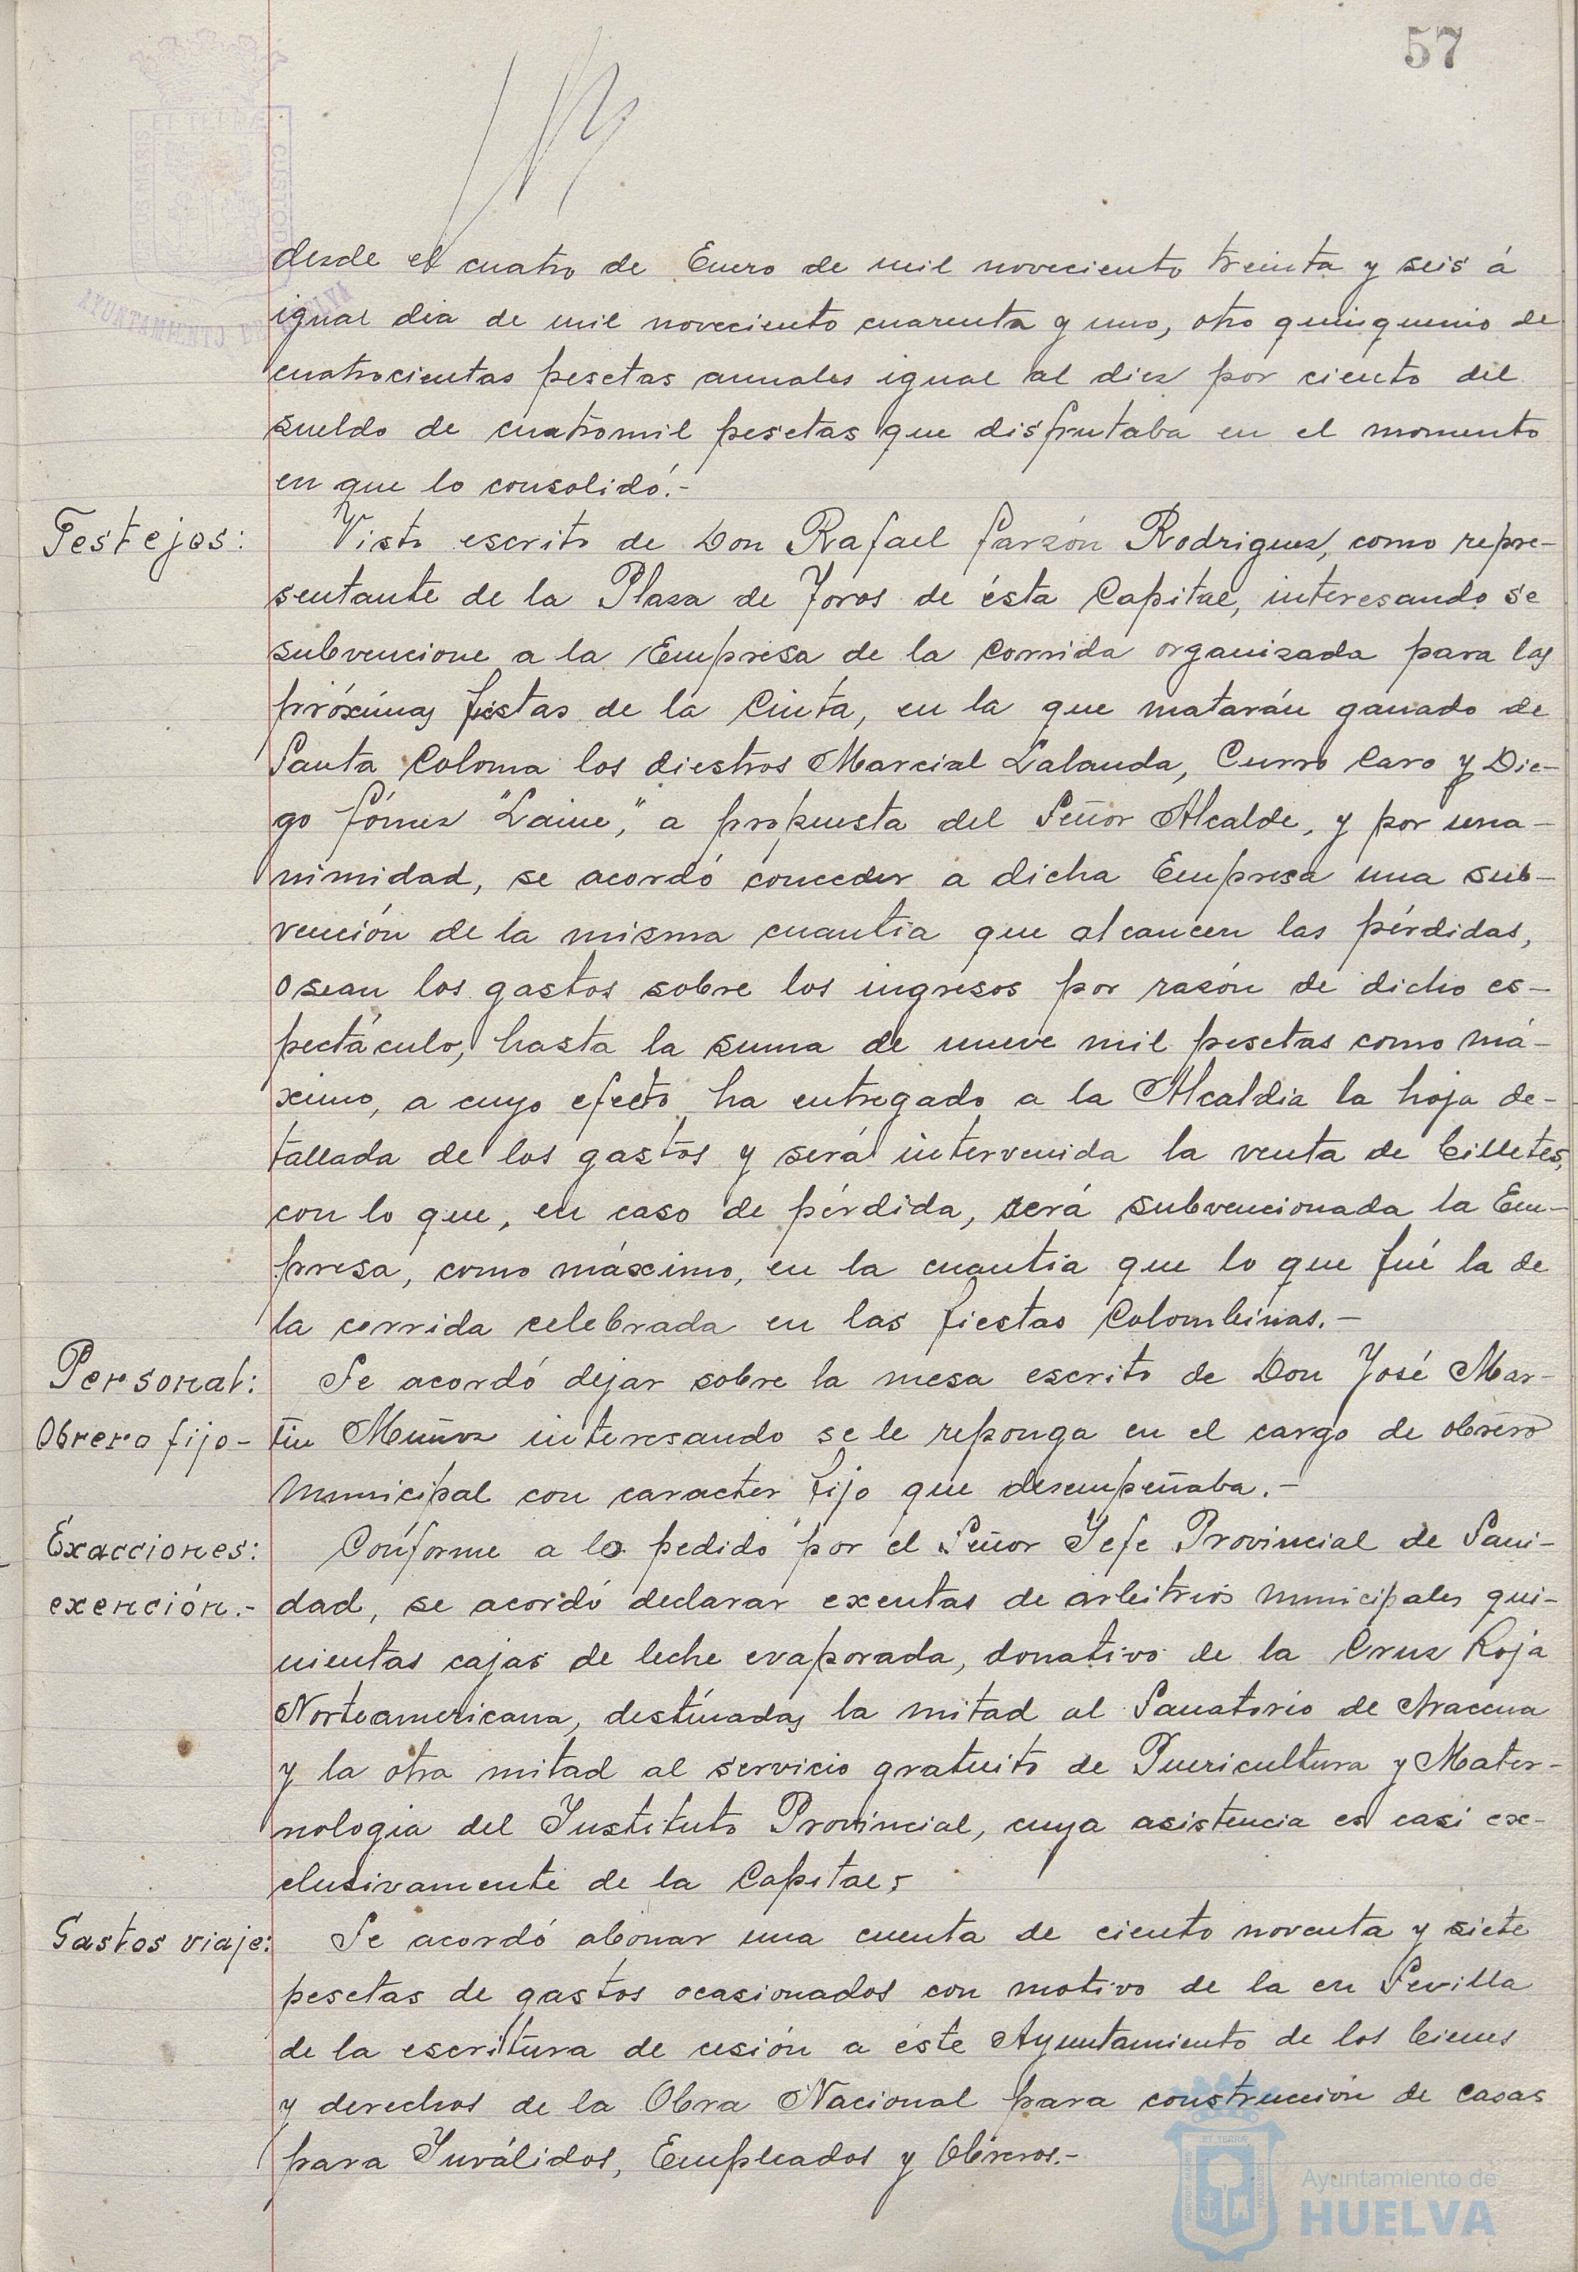 57
desde el cuatro de Enero de mil noveciento treinta y seis á
igual dia de mil noveciento cuarenta y uno, otro quinquenio de
cuatrocientas pesetas anuales igual al diez por ciento del
sueldo de cuatromil pesetas que disfrutaba en el momento
en que lo consolidó.-
Festejos: Visto escrito de Don Rafael Garzón Rodriguez, como repre-
sentante de la Plaza de Toros de ésta Capital, interesando se
subvencione a la Empresa de la Corrida organizada para las
próximas fiestas de la Cinta, en la que matarán ganado de
Santa Coloma los diestros Marcial Lalanda, Curro Caro y Die-
go Gómez "Laine", a propuesta del Señor Alcalde, y por una-
nimidad, se acordó conceder a dicha Empresa una sub-
vención de la misma cuantia que alcancen las pérdidas,
o sean los gastos sobre los ingresos por razón de dicho es-
pectáculo, hasta la suma de nueve mil pesetas como má-
ximo, a cuyo efecto ha entregado a la Alcaldia la hoja de-
tallada de los gastos y será intervenida la venta de billetes,
con lo que, en caso de pérdida, será subvencionada la Em-
presa, como máximo, en la cuantia que lo que fué la de
la corrida celebrada en las fiestas Colombinas.-
Personal: Se acordó dejar sobre la mesa escrito de Don José Mar-
Obrero fijo- tin Muñoz interesando se le reponga en el cargo de obrero
municipal con caracter fijo que desempeñaba.-
Exacciones: Conforme a lo pedido por el Señor Jefe Provincial de Sani-
exención.- dad, se acordó declarar exentas de arbitrios municipales qui-
nientas cajas de leche evaporada, donativo de la Cruz Roja
Norteamericana, destinadas la mitad al Sanatorio de Aracena
y la otra mitad al servicio gratuito de Puericultura y Mater-
nologia del Instituto Provincial, cuya asistencia es casi ex-
clusivamente de la Capital.
Gastos viaje: Se acordó abonar una cuenta de ciento noventa y siete
pesetas de gastos ocasionados con motivo de la en Sevilla
de la escritura de cesión a éste Ayuntamiento de los bienes
y derechos de la Obra Nacional para construcción de casas
para Inválidos, Empleados y Obreros.-
AYUNTAMIENTO DE HUELVA
Ayuntamiento de
HUELVA